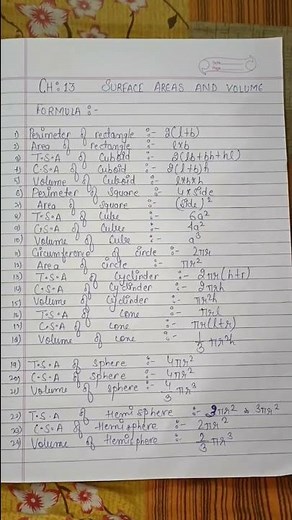 CH:13 SURFACE AREAS AND VOLUME
FORMULA :-
1) Perimeter of rectangle :- 2(l+b)
2) Area of rectangle :- l×b
3) T.S.A of Cuboid :- 2(lb+bh+hl)
4) C.S.A of Cuboid :- 2(l+b)h
5) Volume of Cuboid :- l×b×h
6) Perimeter of Square :- 4×side
7) Area of Square :- (side)²
8) T.S.A of Cube :- 6a²
9) C.S.A of Cube :- 4a²
10) Volume of Cube :- a³
11) Circumference of Circle :- 2πr
12) Area of circle :- πr²
13) T.S.A of Cylinder :- 2πr(h+r)
14) C.S.A of Cylinder :- 2πrh
15) Volume of Cylinder :- πr²h
16) T.S.A of cone :- πrl
17) C.S.A of cone :- πr(l+r)
18) Volume of cone :- 1/3 πr²h
19) T.S.A of sphere :- 4πr²
20) C.S.A of sphere :- 4πr²
21) Volume of sphere :- 4/3 πr³
22) T.S.A of Hemisphere :- 3πr²
23) C.S.A of Hemisphere :- 2πr²
24) Volume of Hemisphere :- 2/3 πr³